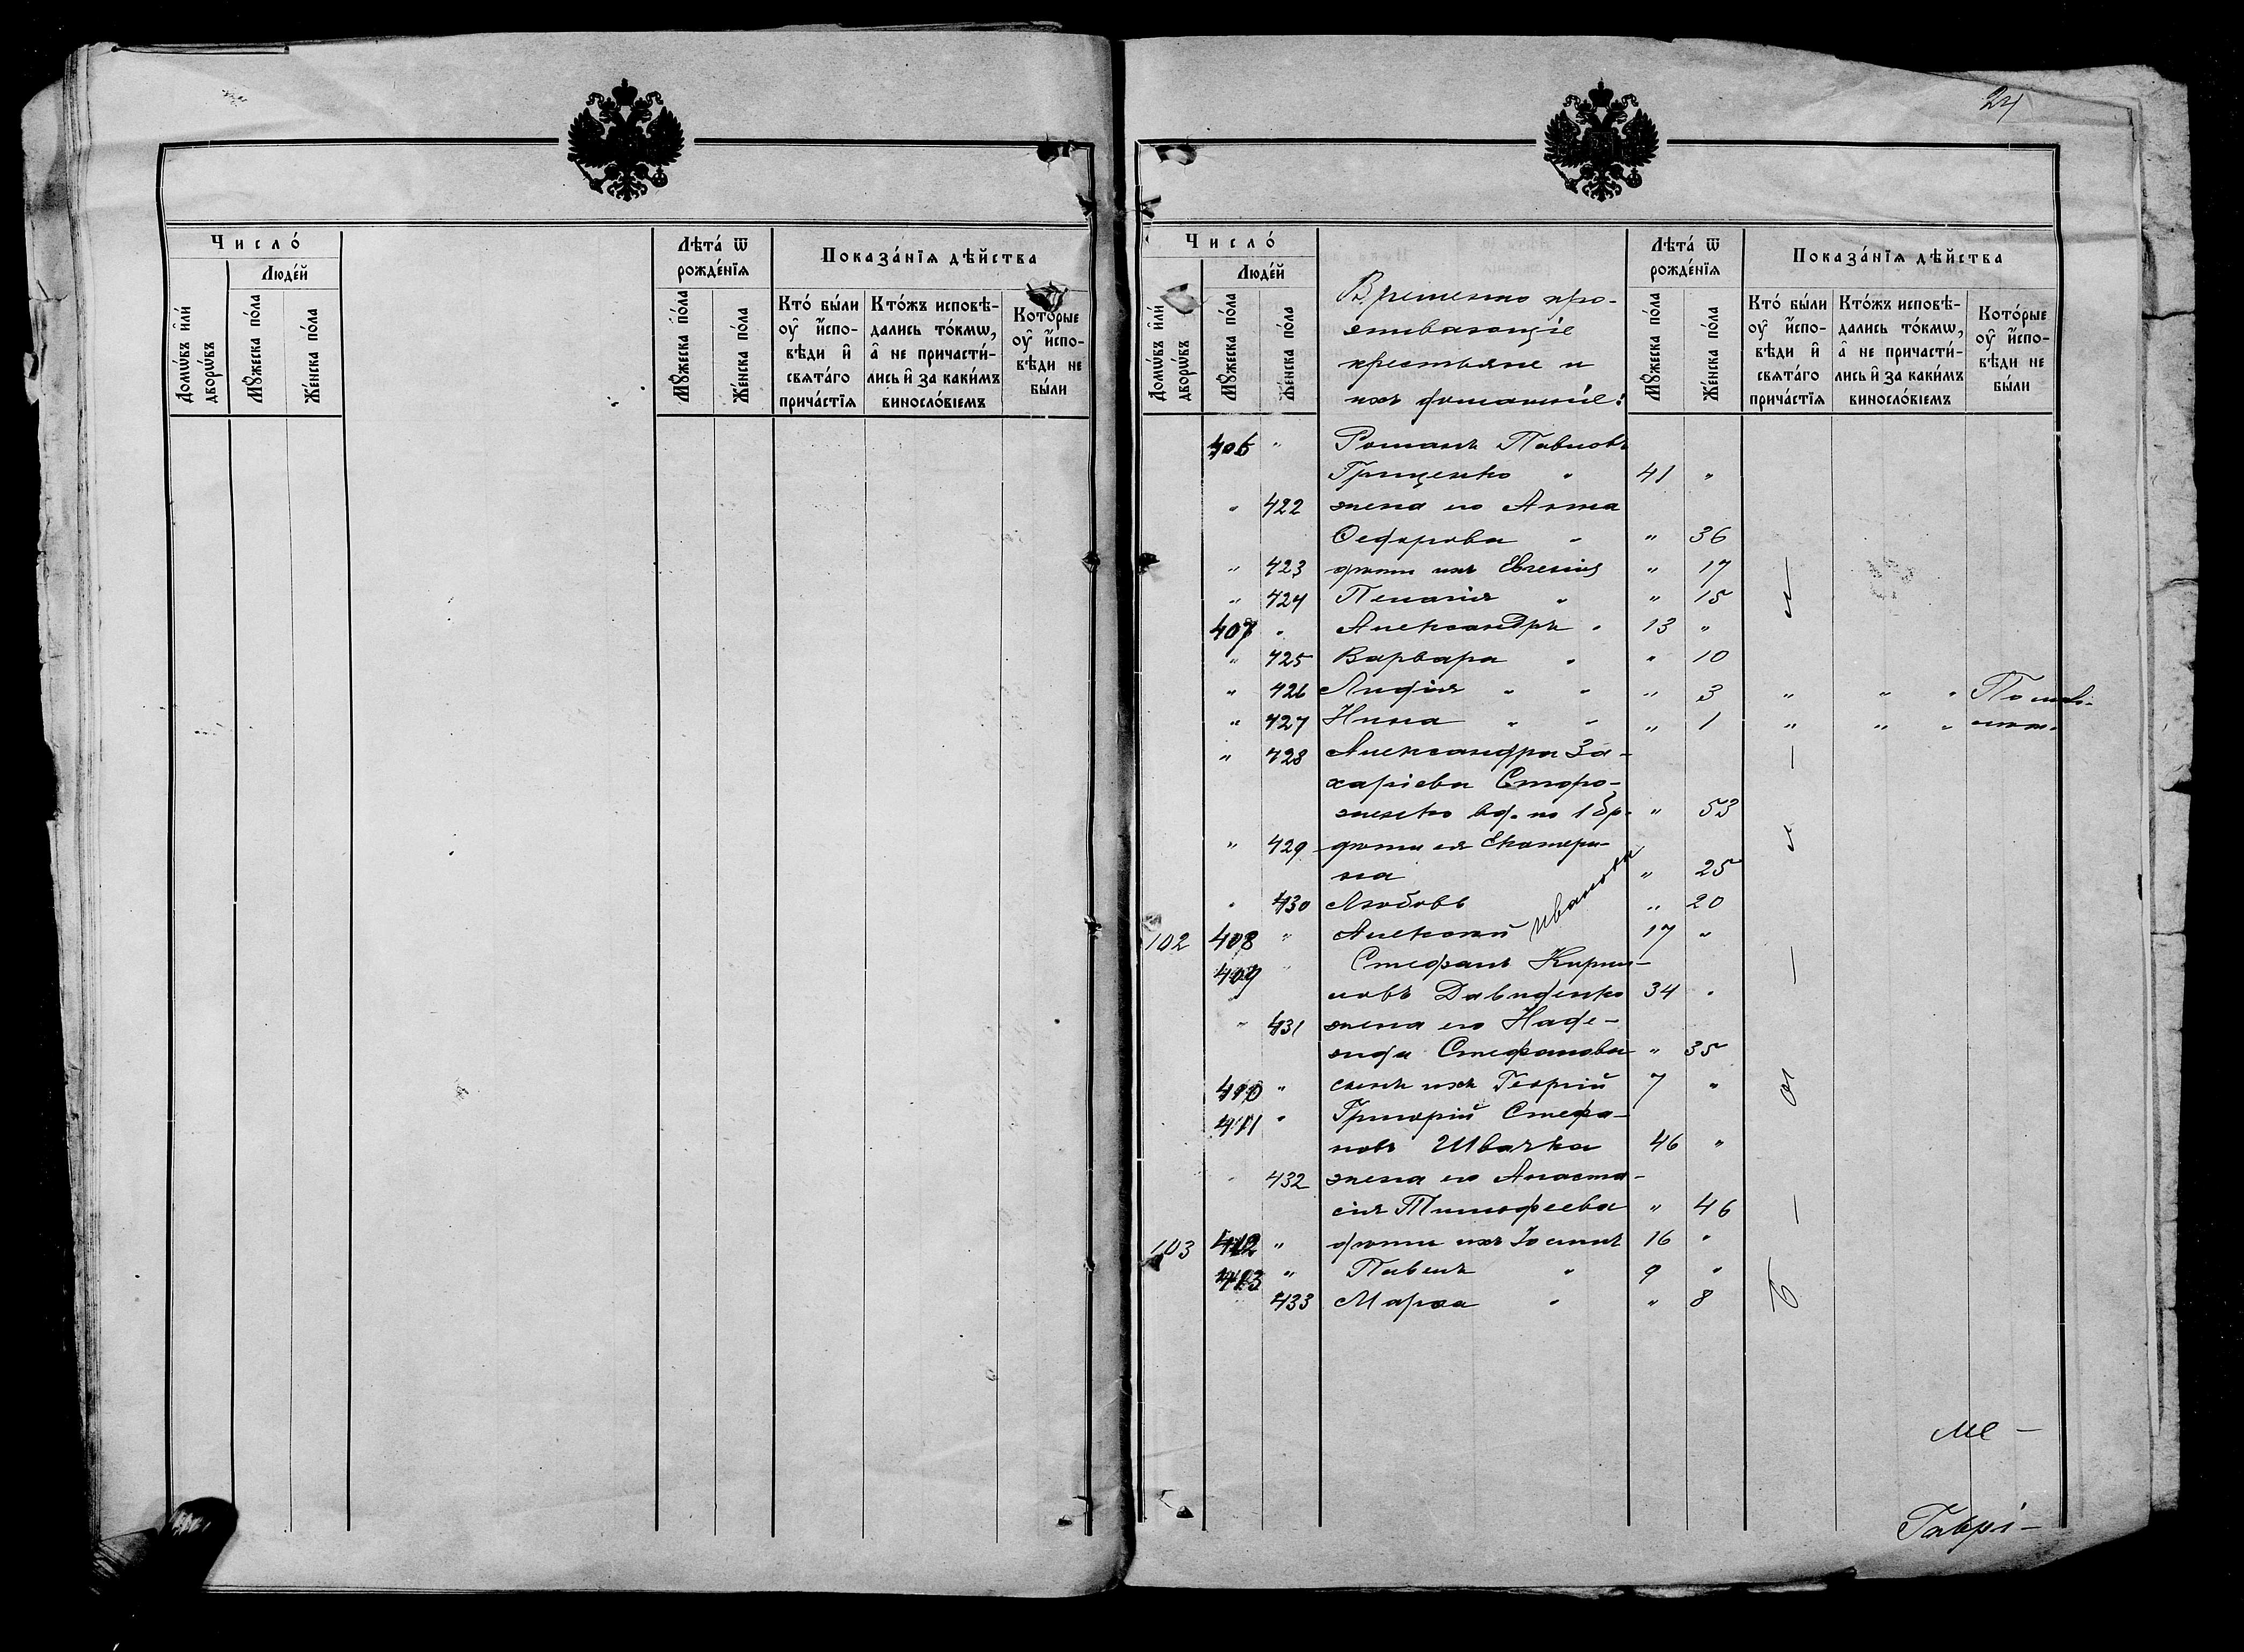 Число́
Люде́й
Домѡ́въ и҆лѝ
дворѡ́въ
Мꙋ́жеска по́ла
Же́нска по́ла
Лѣта̀ ѿ
рожде́нїѧ
Мꙋ́жеска по́ла
Же́нска по́ла
Показа́нїѧ дѣ́йства
Кто̀ бы́ли
оу҆ и҆спо-
вѣди и҆
свѧта́го
прича́стїѧ
Кто́жъ исповѣ-
дались то́кмѡ,
а҆ не причасти́-
лись и҆ за каки́мъ
виносло́вїемъ
Кото́рые
оу҆ и҆спо-
вѣди не
бы́ли
24
Число́
Люде́й
Домѡ́въ и҆лѝ
дворѡ́въ
Мꙋ́жеска по́ла
Же́нска по́ла
Временно про-
живающіе
крестьяне и
ихъ домашніе:
Лѣта̀ ѿ
рожде́нїѧ
Мꙋ́жеска по́ла
Же́нска по́ла
Показа́нїѧ дѣ́йства
Кто̀ бы́ли
оу҆ и҆спо-
вѣди и҆
свѧта́го
прича́стїѧ
Кто́жъ исповѣ-
дались то́кмѡ,
а҆ не причасти́-
лись и҆ за каки́мъ
виносло́вїемъ
Кото́рые
оу҆ и҆спо-
вѣди не
бы́ли
406 " Романъ Павловъ
Грищенко " 41 "
" 422 жена его Анна
Ѳедорова " " 36
" 423 дѣти ихъ Евгенія " 17
" 424 Пелагія " " 15
407 " Александръ " 13 "
" 425 Варвара " " 10
" 426 Лидія " " " 3 " " " По мало-
" 427 Нина " " " 1 " " " лѣт.
" 428 Александра За-
харіева Сторо-
женко вд. по 1 бр. " 53
" 429 дѣти ея Екатери-
на " 25
" 430 Любовь " 20
Ивановы
102 408 " Алексѣй 17 "
409 " Стефанъ Кирил-
ловъ Давиденко 34 "
" 431 жена его Наде-
жда Стефанова " 35
410 " сынъ ихъ Георгій 7 "
411 " Григорій Стефа-
новъ Швачка 46 "
" 432 жена его Анаста-
сія Тимофеева " 46
103 412 " дѣти ихъ Іоаннъ 16 "
413 " Павелъ " 9 "
433 Марѳа " " 8
ме-
Гаврі-